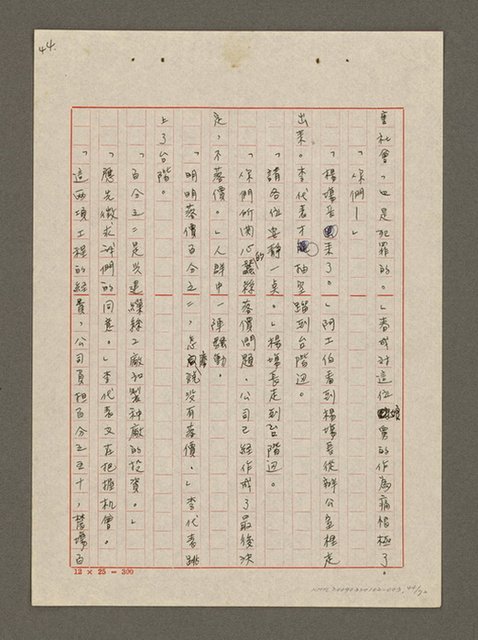 44.
會社會，口是犯罪的。」春成對這位 舅的作為痛惜極了。
「你們─」
「楊場長來了。」阿土伯看到楊場長從辦公室裡走
出來。李代表才 抽空踏到台階邊。
「請各位安靜一點。」楊場長走到台階邊。
「你們所關心的蠶繭落價問題，公司已經作成了最後決
定，不落價。」人群中一陣騷動。
「明明落價百分之二，怎麼說沒有落價。」李代表跳
上了台階。
「百分之二是興建繅絲工廠和製种廠的投資。」
「應先徵求我們的同意。」李代表又在把握机會。
「這兩項工程的經費，公司負担百分之五十，蠶場百
12 × 25 = 300